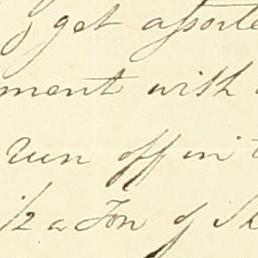 get assorte
ment with
Run off in
1/2 a Ton of